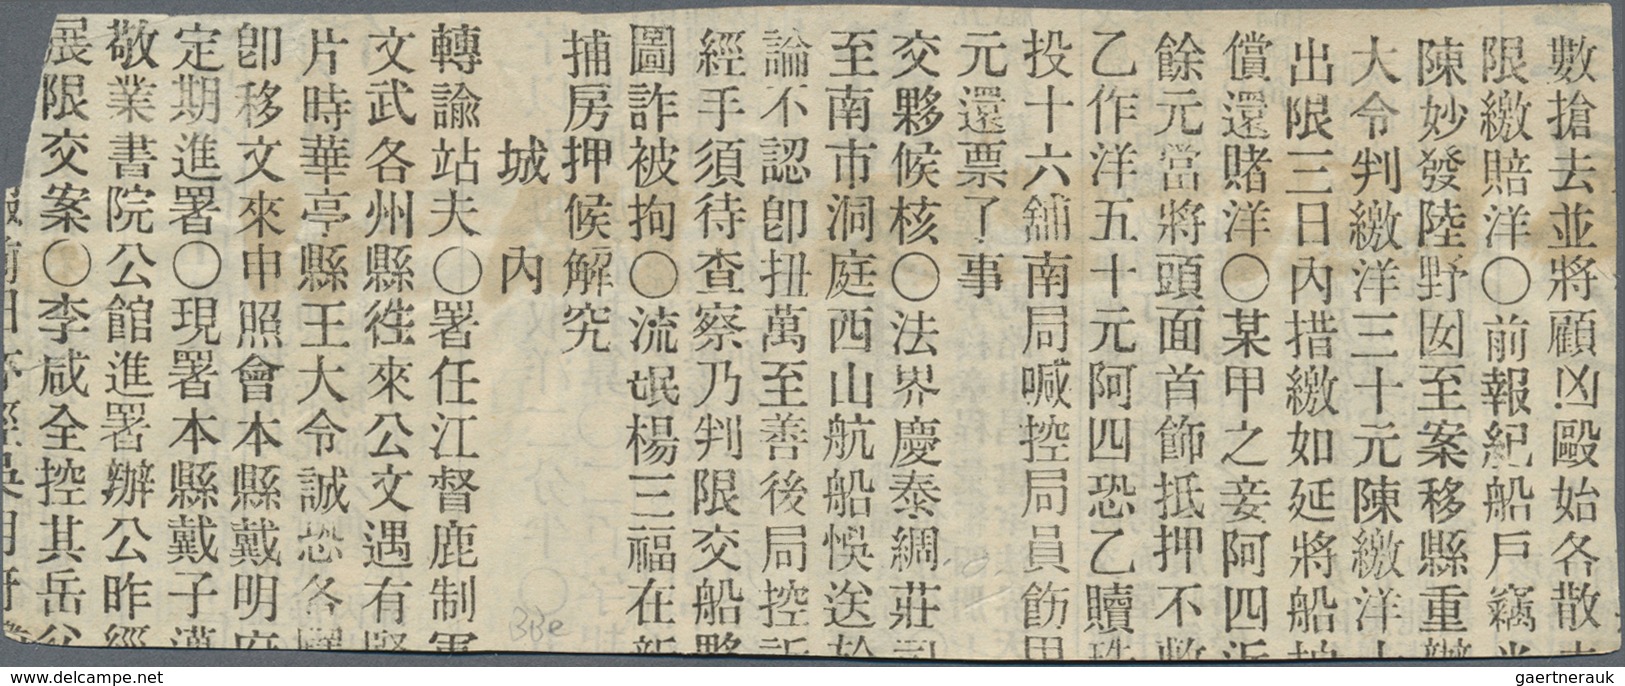 數搶去並將顧凶毆始各散
限繳賠洋〇前報紀船戶竊
陳妙發陸野囡至案移縣重辦
大令判繳洋三十元陳繳洋
出限三日內措繳如延將船
償還賭洋〇某甲之妾阿四
餘元當將頭面首飾抵押不敷
乙作洋五十元阿四恐乙贖
投十六舖南局喊控局員飭
元還票了事
交夥候核〇法界慶泰綢莊
至南市洞庭西山航船悞送於
論不認卽扭萬至善後局控訴
經手須待查察乃判限交船夥
圖詐被拘〇流氓楊三福在新
捕房押候解究
城內
轉諭站夫〇署任江督鹿制軍
文武各州縣徃來公文遇有緊
片時華亭縣王大令誠恐各
卽移文來申照會本縣戴明府
定期進署〇現署本縣戴子邁
敬業書院公館進署辦公昨經
展限交案〇李咸全控其岳父
報前
BBe
www.delcampe.net
gaertnerauk